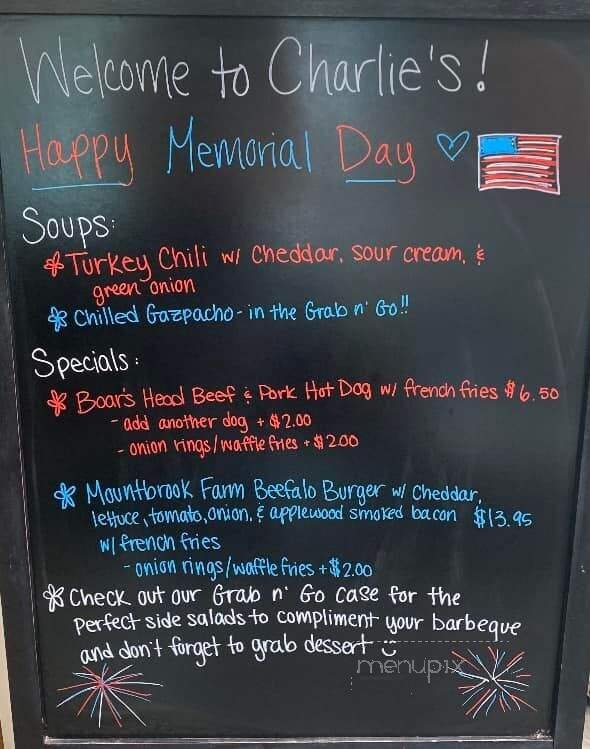 Welcome to Charlie's!
Happy Memorial Day
Soups:
Turkey Chili w/ Cheddar, sour cream, &
green onion
Chilled Gazpacho - in the Grab n' Go!!
Specials:
Boar's Head Beef & Pork Hot Dog w/ french fries $6.50
- add another dog + $2.00
- onion rings/waffle fries + $2.00
Mountbrook Farm Beefalo Burger w/ Cheddar,
lettuce, tomato, onion, & applewood smoked bacon $13.95
w/ french fries
- onion rings/waffle fries + $2.00
Check out our Grab n' Go case for the
Perfect side salads to compliment your barbeque
and don't forget to grab dessert
menupix